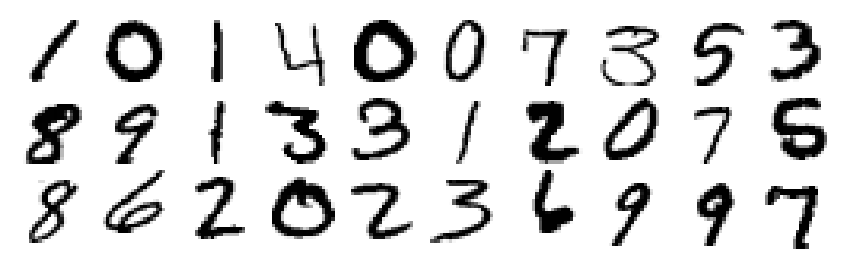 1 0 1 4 0 0 7 3 5 3
8 9 1 3 3 1 2 0 7 5
8 6 2 0 2 3 6 9 9 7